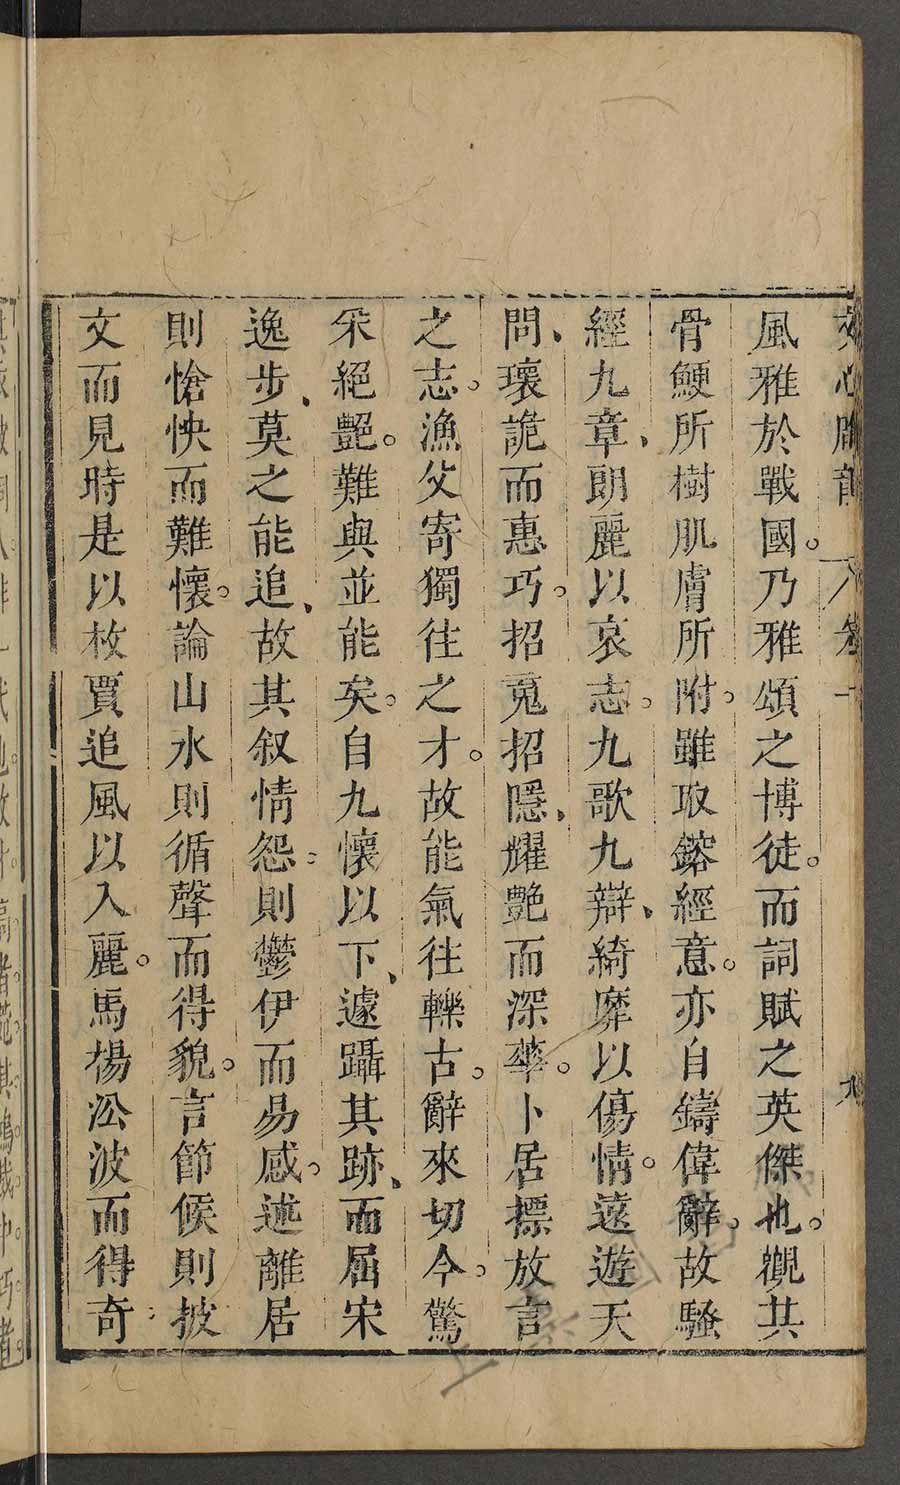 文心雕龍 卷一 九
風雅於戰國。乃雅頌之博徒。而詞賦之英傑也。觀其
骨鯁所樹肌膚所附。雖取鎔經意。亦自鑄偉辭。故騷
經九章、朗麗以哀志。九歌九辯、綺靡以傷情。遠遊天
問、瓌詭而惠巧。招䰟招隱、耀艷而深華。卜居摽放言
之志。漁父寄獨往之才。故能氣往轢古。辭來切今。驚
采絕艷。難與並能矣。自九懷以下、遽躡其跡、而屈宋
逸步、莫之能追、故其叙情怨則鬱伊而易感。述離居
則愴怏而難懷。論山水則循聲而得貌。言節候則披
文而見時是以枚賈追風以入麗。馬揚沿波而得奇